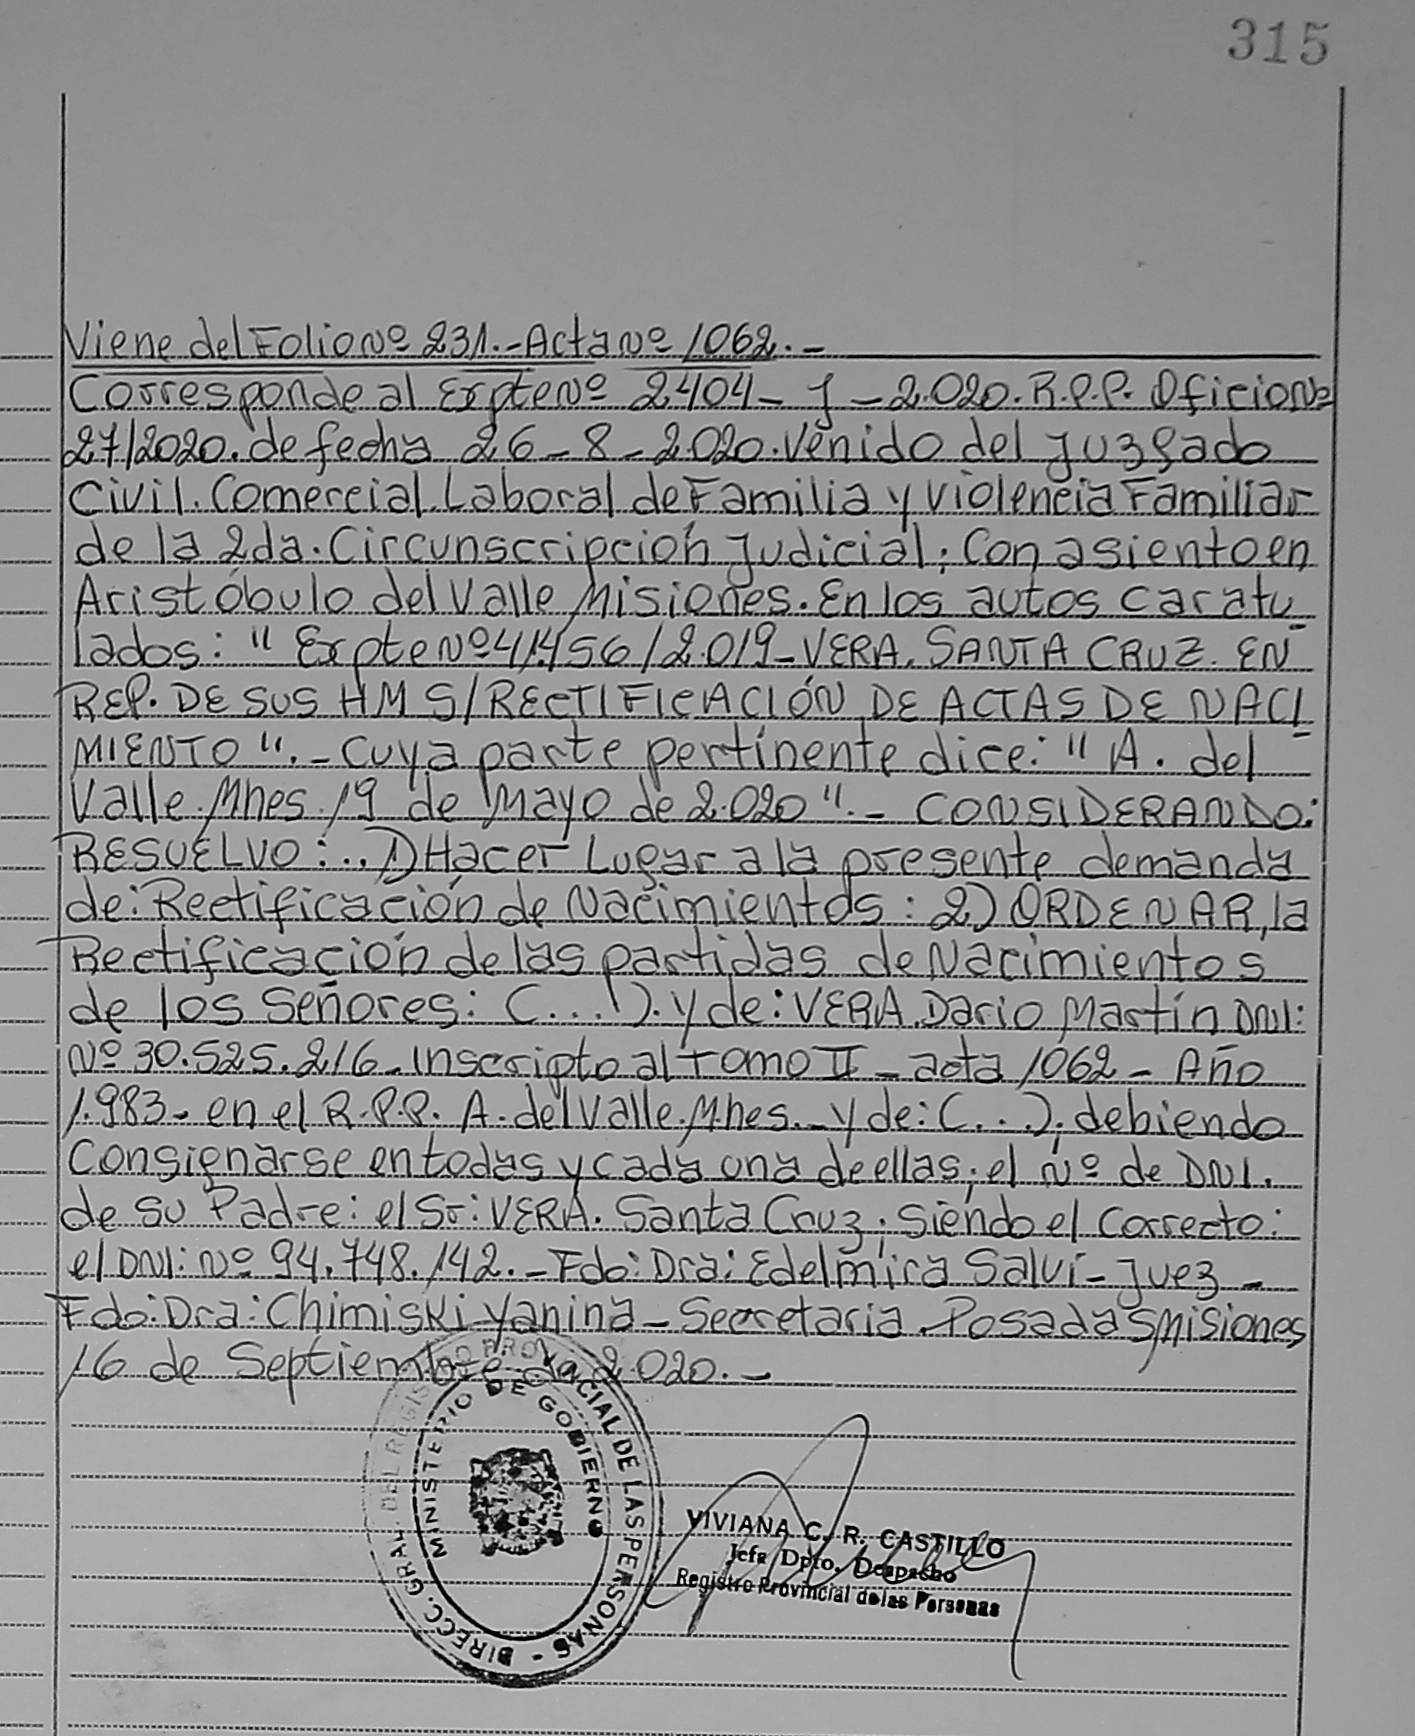 315
Viene del Folio Nº 231.- Acta Nº 1062.-
Corresponde al Expte Nº 2404- J -2.020. R.P.P. Oficio Nº
27/2020. de fecha 26-8-2.020. Venido del Juzgado
Civil. Comercial. Laboral de Familia y Violencia Familiar
de la 2da. Circunscripción Judicial; Con asiento en
Aristóbulo del Valle Misiones. En los autos caratu
lados: "Expte Nº 41456/2.019_VERA. SANTA CRUZ. EN
REP. DE SUS HM S/RECTIFICACIÓN DE ACTAS DE NACI
MIENTO".- Cuya parte pertinente dice: "A. del
Valle. Mnes. 19 de Mayo de 2.020".- CONSIDERANDO:
RESUELVO:... 1) Hacer Lugar a la presente demanda
de: Rectificación de Nacimientos: 2) ORDENAR, la
Rectificación de las partidas de Nacimientos
de los Señores: (...). y de: VERA. Dario Martín DNI:
Nº 30.525.216_ Inscripto al Tomo II _ acta 1062 - Año
1.983- en el R.P.P. A. del Valle. Mnes. _ y de: (...); debiendo
Consignarse en todas y cada una de ellas; el Nº de DNI.
de su Padre: el Sr: VERA. Santa Cruz; siendo el Correcto:
el DNI: Nº 94.748.142.- Fdo: Dra: Edelmira Salvi- Juez -
Fdo: Dra: Chimiski Yanina - Secretaria. Posadas Misiones
16 de Septiembre de 2.020.-
DIRECC. GRAL. DEL REGISTRO PROVINCIAL DE LAS PERSONAS -
MINISTERIO DE GOBIERNO
VIVIANA C. R. CASTILLO
Jefa Dpto. Despacho
Registro Provincial de las Personas